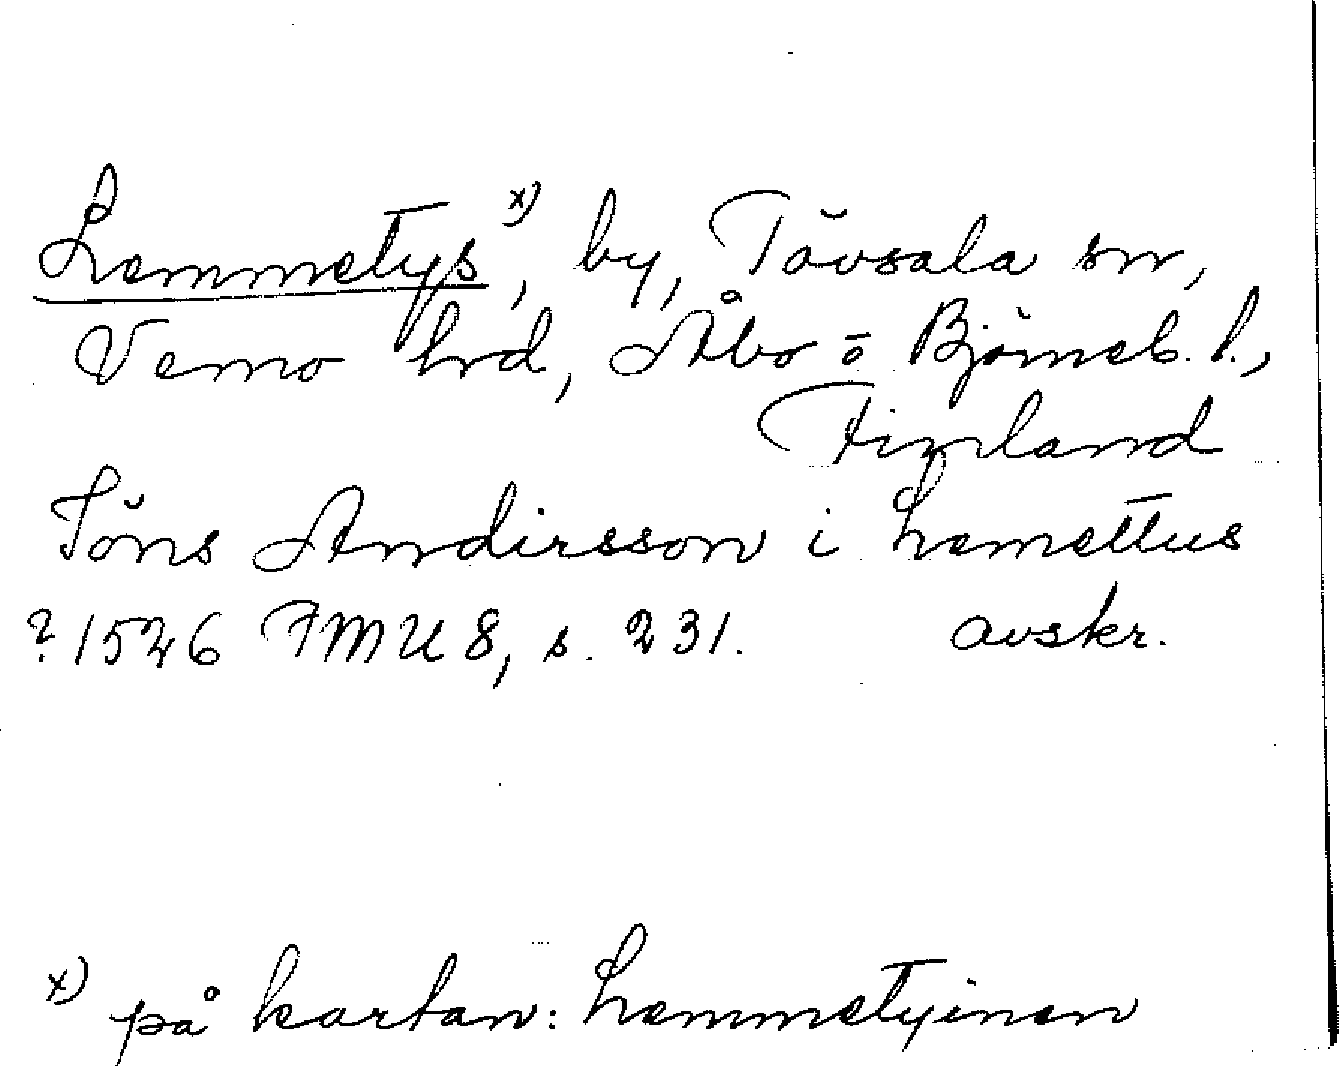 Lemmetys x), by, Tövsala sn,
Vemo hrd, Åbo o Björneb. l.,
Finland
Jöns Andirsson i Lemettus
? 1526 FMU 8, s. 231. avskr.
x) på kartan: Lemmetyinen